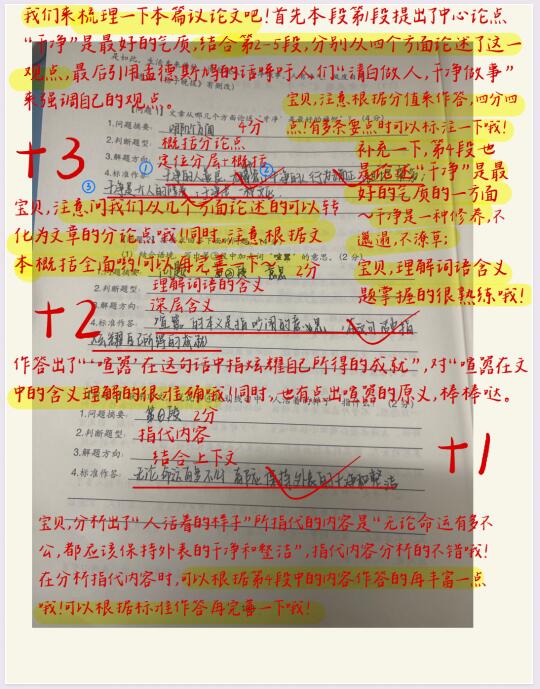 我们来梳理一下本篇议论文吧！首先本段第1段提出了中心论点
“干净”是最好的气质，结合第2-5段，分别从四个方面论述了这一
观点，最后引用孟德斯鸠的话呼吁人们“清白做人，干净做事”
来强调自己的观点。
宝贝，注意根据分值来作答，四分四
点！有多条要点时可以标注一下哦！
【问题1】文章从哪几个方面论述
1.问题摘要：哪几个方面 4分
2.判断题型：概括分论点
3.解题方向：定位分层+概括
+3
补充一下，第2段也
是论述“干净”是最
好的气质的一方面
～干净是一种修养，不
邋遢，不潦草；
宝贝，注意问我们从几个方面论述的可以转
化为文章的分论点哦！同时，注意根据文
本概括全面哟！可以再完善一下～
宝贝，理解词语含义
题掌握的很熟练哦！
2分
2.判断题型：理解词语的含义
3.解题方向：深层含义
4.标准作答：喧嚣的本义是指吵闹的意思
炫耀自己所得的成就
+2
作答出了“‘喧嚣’在这句话中指炫耀自己所得的成就”，对“喧嚣在文
中的含义理解的很准确哦！同时，也有点出喧嚣的原义，棒棒哒。
1.问题摘要： 2分
2.判断题型：指代内容
3.解题方向：结合上下文
4.标准作答：无论命运有多不公，都应保持外表的干净和整洁
+1
宝贝，分析出了“人活着的样子”所指代的内容是“无论命运有多不
公，都应该保持外表的干净和整洁”，指代内容分析的不错哦！
在分析指代内容时，可以根据第4段中的内容作答的再丰富一点
哦！可以根据标准作答再完善一下哦！